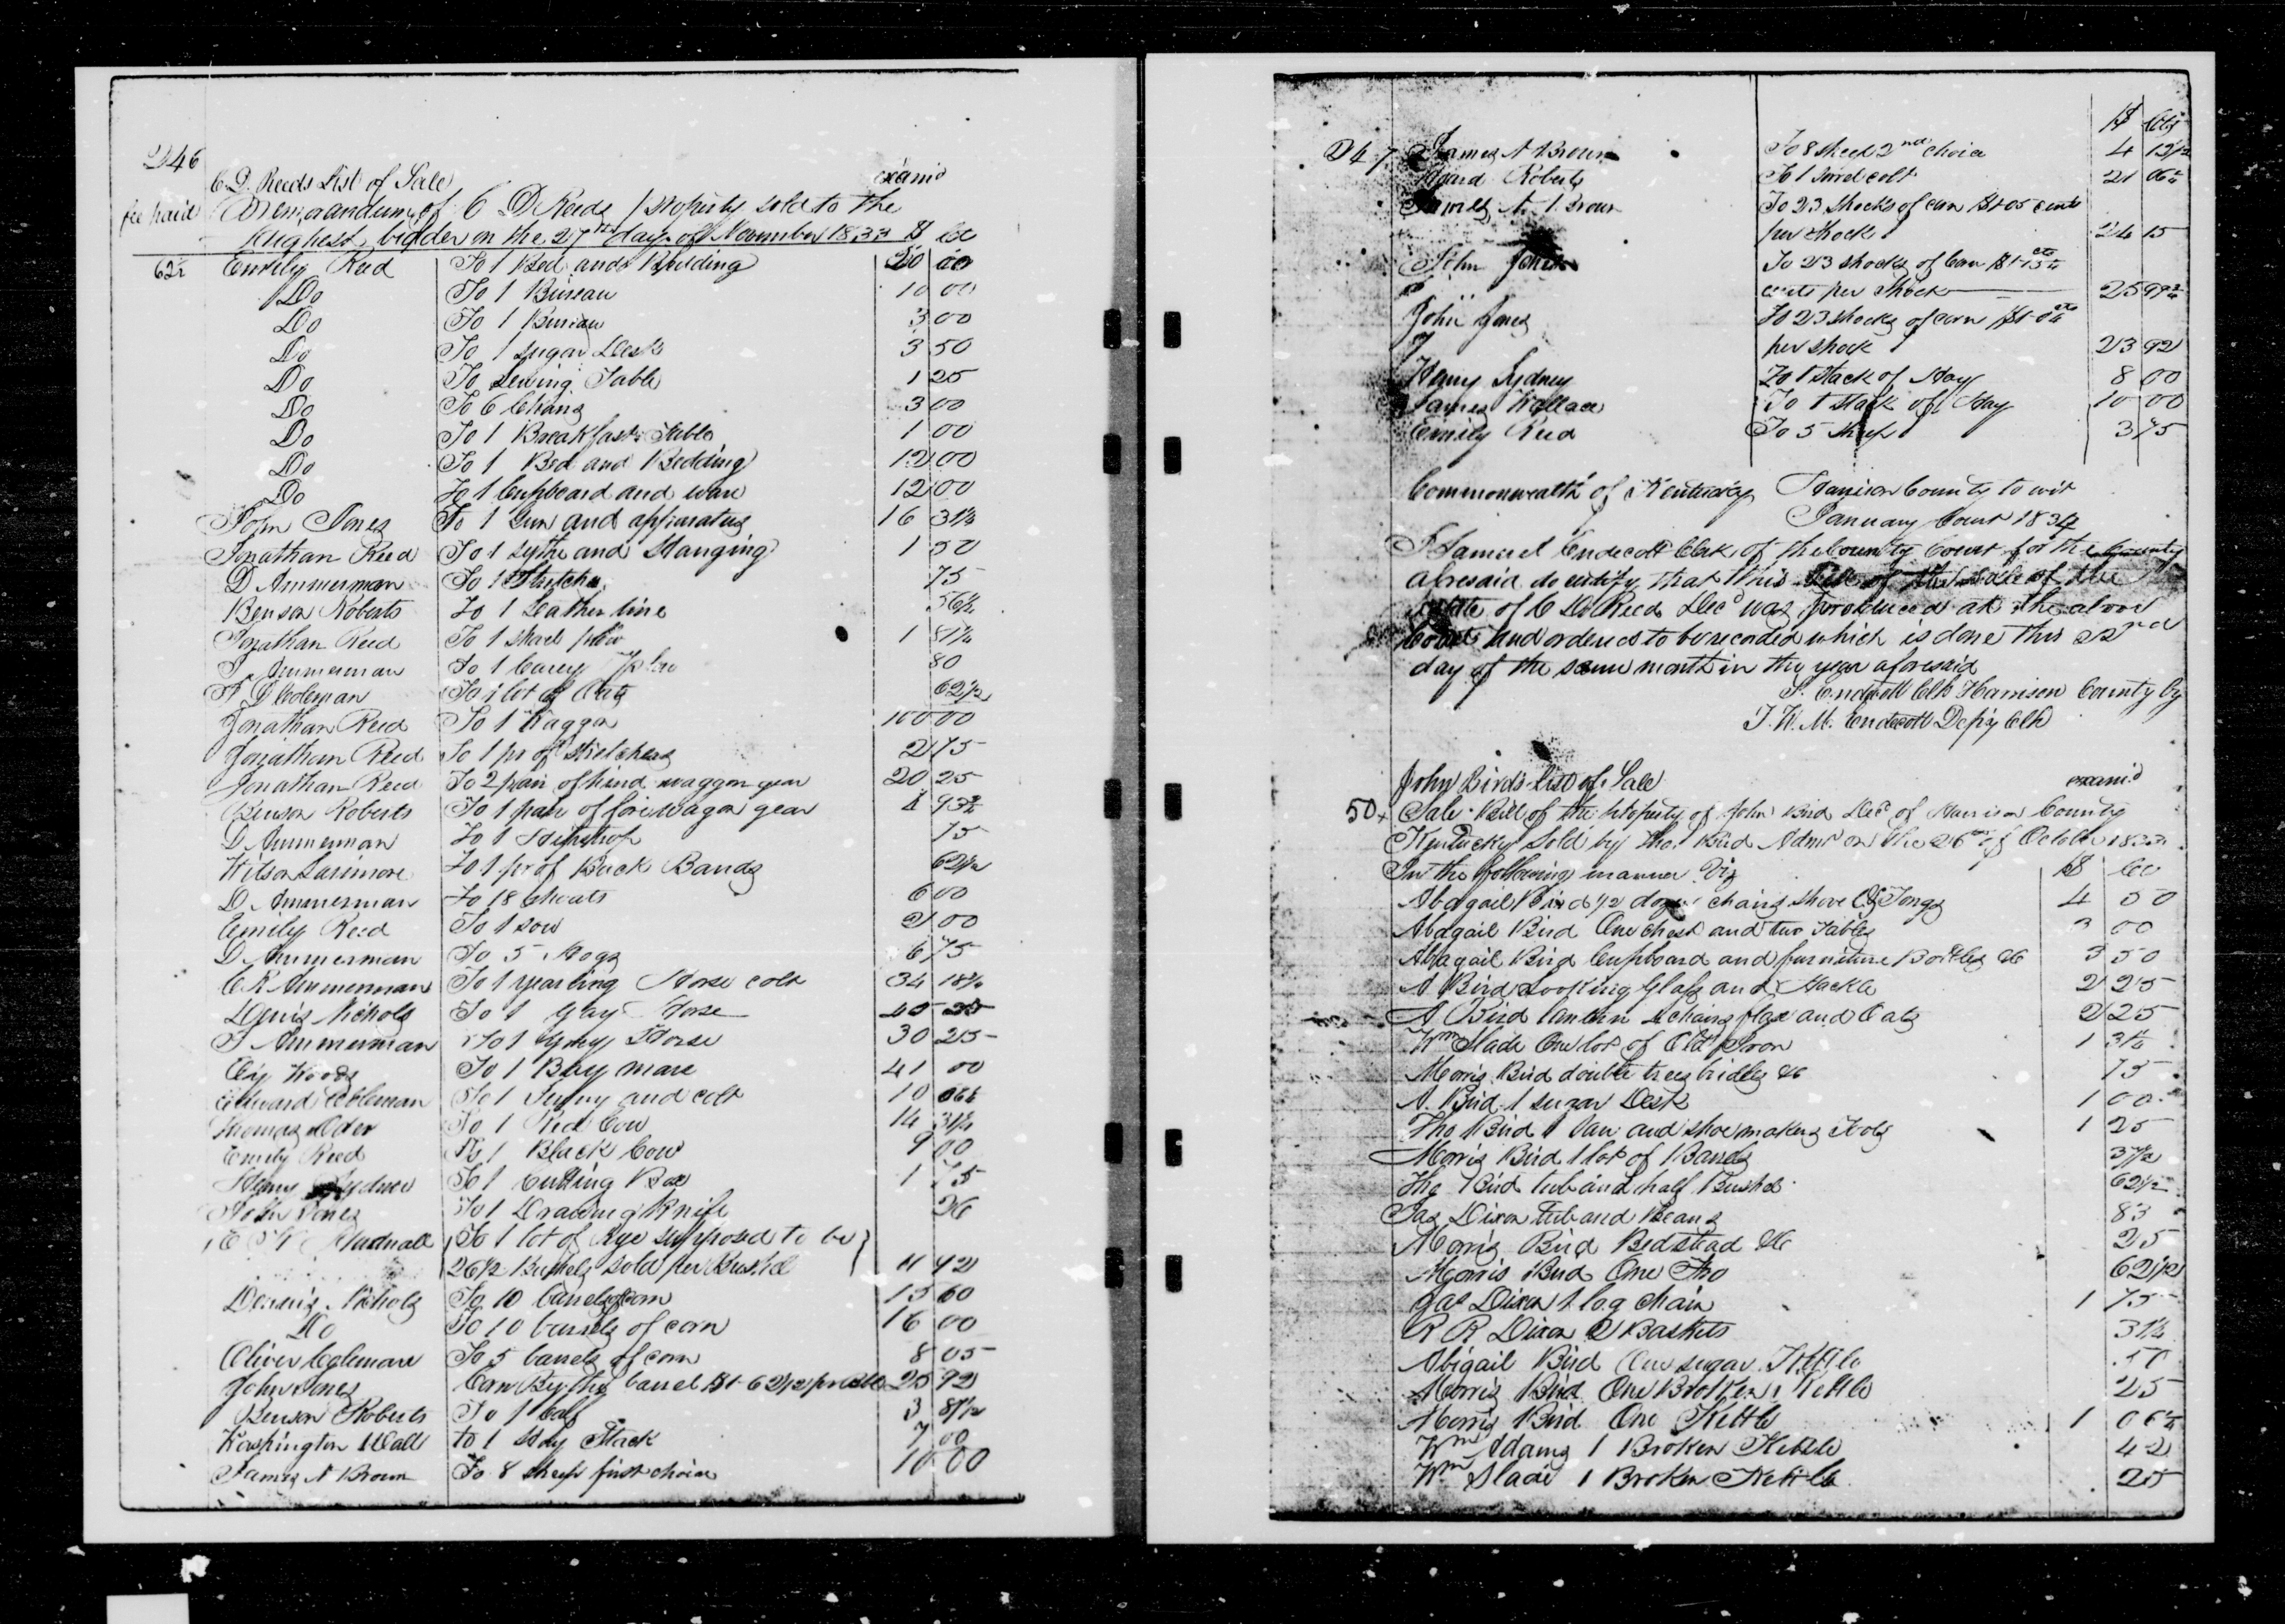 246
C. D. Reeds List of Sale examd
fee paid Memorandum of C D Reeds property sold to the
highest bidder on the 27th day of November 1833 $ Cts
62½ Emily Reed To 1 Bed and Bedding 20 00
Do To 1 Bureau 10 00
Do To 1 Bureau 3 00
Do To 1 sugar Desk 3 50
Do To Sewing Table 1 25
Do To 6 Chairs 3 00
Do To 1 Breakfast Table 1 00
Do To 1 Bed and Bedding 12 00
Do To 1 Cupboard and ware 12 00
John Jones To 1 Gun and apparatus 16 31¼
Jonathan Reed To 1 sythe and Hanging 1 50
D Ammerman To 1 Stretcher 75
Benson Roberts To 1 Leather line 56½
Jonathan Reed To 1 shovel plow 1 81¼
J. Ammerman To 1 Carey Plow 80
Coleman To 1 lot of Oats 62½
Jonathan Reed To 1 Waggon 100 00
Jonathan Reed To 1 pr of Stretchers 2 75
Jonathan Reed To 2 pair of hind waggon gear 20 25
Benson Roberts To 1 pair of fore wagon gear 4 93¾
D Ammerman To 1 75
Wilson Larimore To 1 pr of Back Bands 62½
D. Ammerman To 18 shoats 6 00
Emily Reed To 1 sow 2 00
D Ammerman To 5 Hogs 6 75
C R Ammerman To 1 yearling Horse colt 34 18¾
Dennis Nichols To 1 Gray Horse 45 25
J Ammerman To 1 Gray Horse 30 25
Woods To 1 Bay mare 41 00
Edward Coleman To 1 Jenny and colt 10 06¼
Thomas Oder To 1 Red Cow 14 31¼
Emily Reed To 1 Black Cow 9 00
Henry To 1 Cutting Box 1 75
John Jones To 1 Drawing Knife 26
To 1 lot of Rye supposed to be
26½ Bushels sold per Bushel 11 42
Dennis Nichols To 10 barrels of corn 15 60
Do To 10 barrels of corn 16 00
Oliver Coleman To 5 barrels of corn 8 05
John Jones Corn By the barrel $1-62½ pr 25 92
Benson Roberts To 1 Calf 3 81½
Washington Wall to 1 Hay Stack 7 00
James A Brown To 8 sheep first choice 10 00
$ Cts
247 James A Brown To 8 sheep 2nd choice 4 12½
Roberts To 1 sorrel colt 21 06¼
James A. Brown To 23 Shocks of corn $1-05 cents
per Shock 24 15
John Jones To 23 shocks of Corn $1-13
cents per Shock 25 99¾
John Jones To 23 shocks of corn $1-04
per shock 23 92
Henry Sydney To 1 stack of Hay 8 00
James Wallace To 1 stack of Hay 10 00
Emily Reed To 5 sheep 3 75
Commonwealth of Kentucky Harrison County to wit
January Court 1834
I Samuel Endecott Clerk of the County Court for the County
aforesaid do certify that this of the sale of the
estate of C D Reed Decd was produced at the above
Court and ordered to be recorded which is done this 22nd
day of the same month in the year aforesaid
S. Endecott Clk Harrison County by
J. W. M. Endecott Depty Clk
John Birds List of Sale examd
50 Sale Bill of the property of John Bird Decd of Harrison County
Kentucky Sold by Tho. Bird Admr on the 26th of October 1833
In the following manner Viz $ Cts
Abagail Bird ½ dozen chairs shovel & Tongs 4 50
Abagail Bird One chest and two Tables 3 00
Abagail Bird Cupboard and furniture Bottles &c 3 50
A Bird Looking Glass and Hackle 2 25
A Bird chairs flax and Oats 2 25
Wm Slade One lot of Old Iron 1 31¼
Morris Bird double trees bridles &c 75
A. Bird 1 sugar Desk 1 00
Tho Bird 1 and shoe making Tools 1 25
Morris Bird 1 lot of Barrels 37½
Tho Bird tub and half Bushel 62½
Jas Dixon Tub and Beans 83
Morris Bird Bedstead &c 25
Morris Bird One 62½
Jas Dixon 1 log chain 1 75
R R Dixon 2 Baskets 31¼
Abigail Bird One sugar Kettle 50
Morris Bird One Broken Kettle 25
Morris Bird One Kettle 1 06¼
Wm Adams 1 Broken Kettle 42
Wm Slade 1 Broken Kettle 25